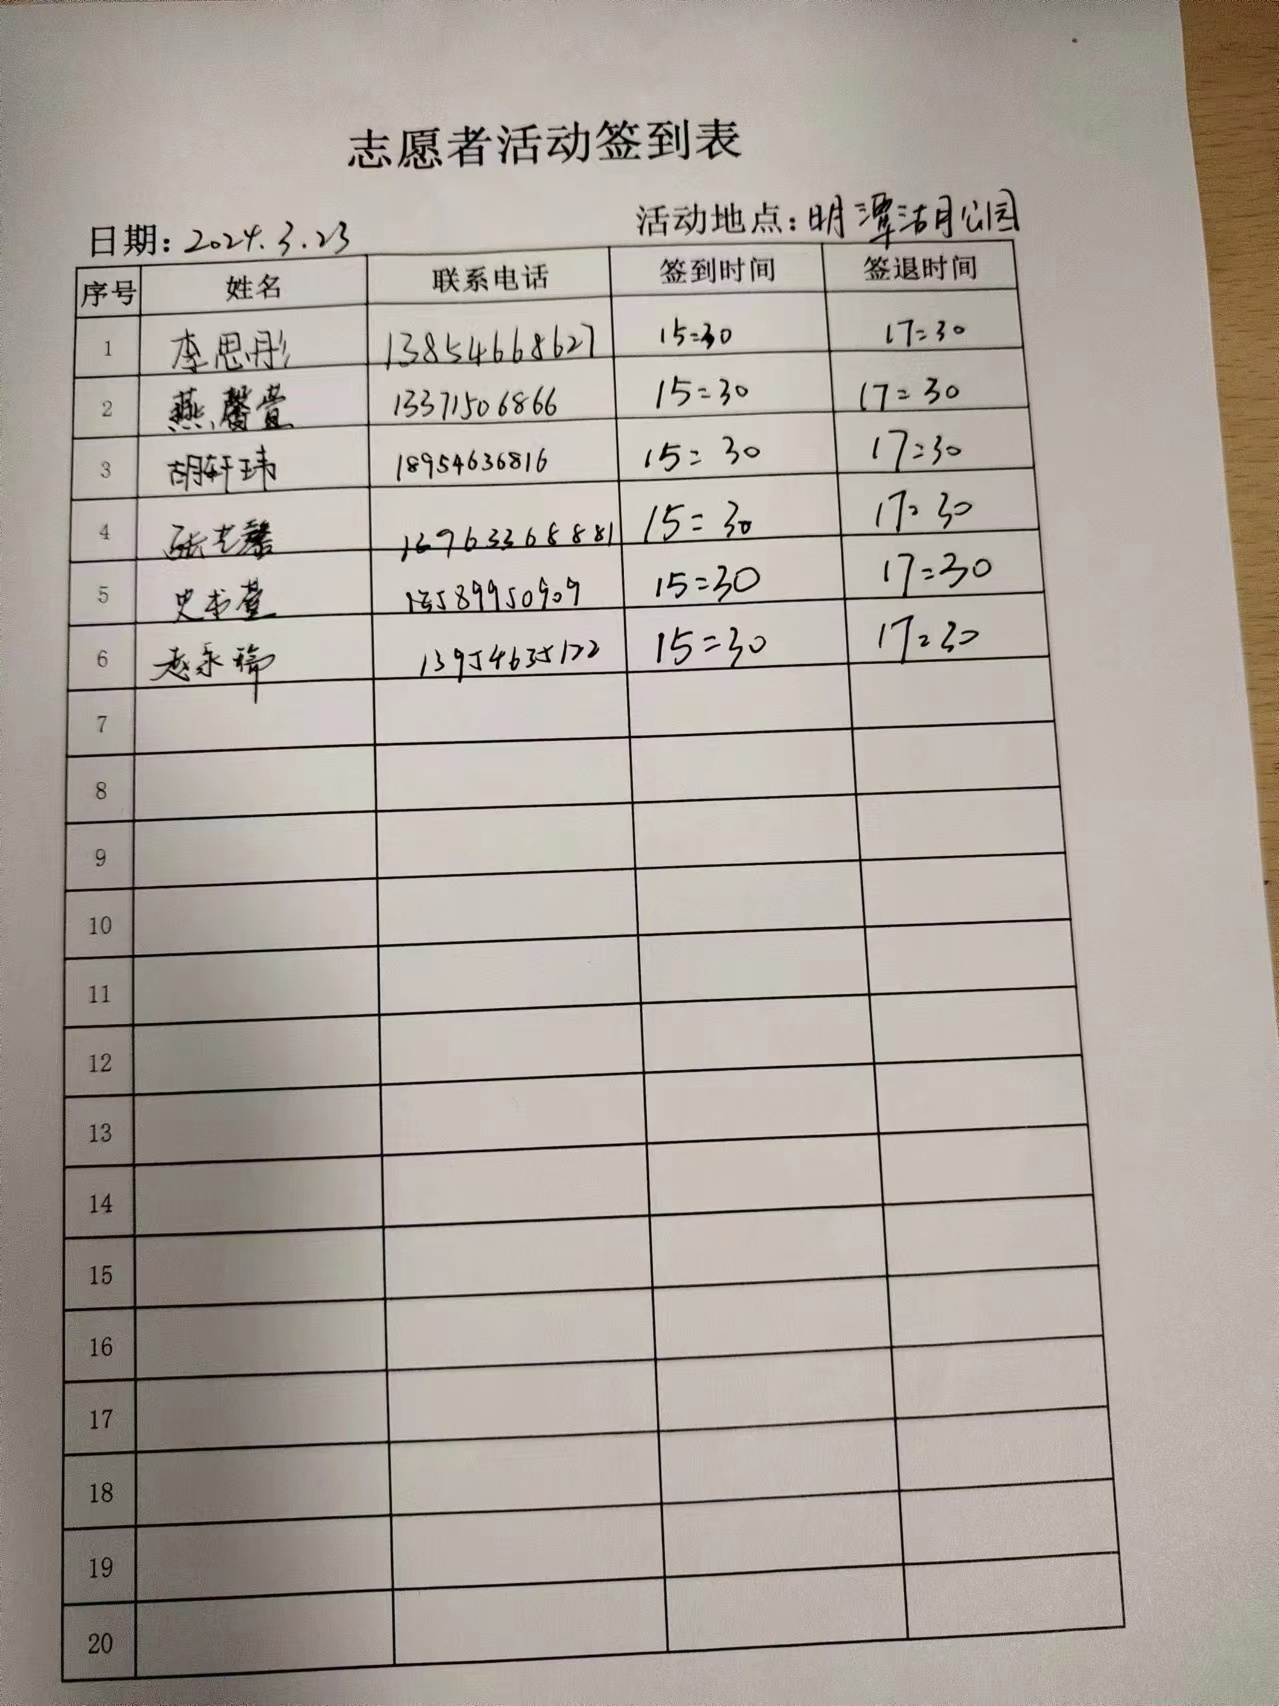 志愿者活动签到表
日期: 2024.3.23 活动地点: 明潭湖公园
序号 姓名 联系电话 签到时间 签退时间
1 李思彤 13854668627 15=30 17=30
2 燕馨萱 13371506866 15=30 17=30
3 胡轩玮 18954636816 15=30 17=30
4 15=30 17=30
5 史书萱 13589950909 15=30 17=30
6 赵永瑞 13954635122 15=30 17=30
7
8
9
10
11
12
13
14
15
16
17
18
19
20